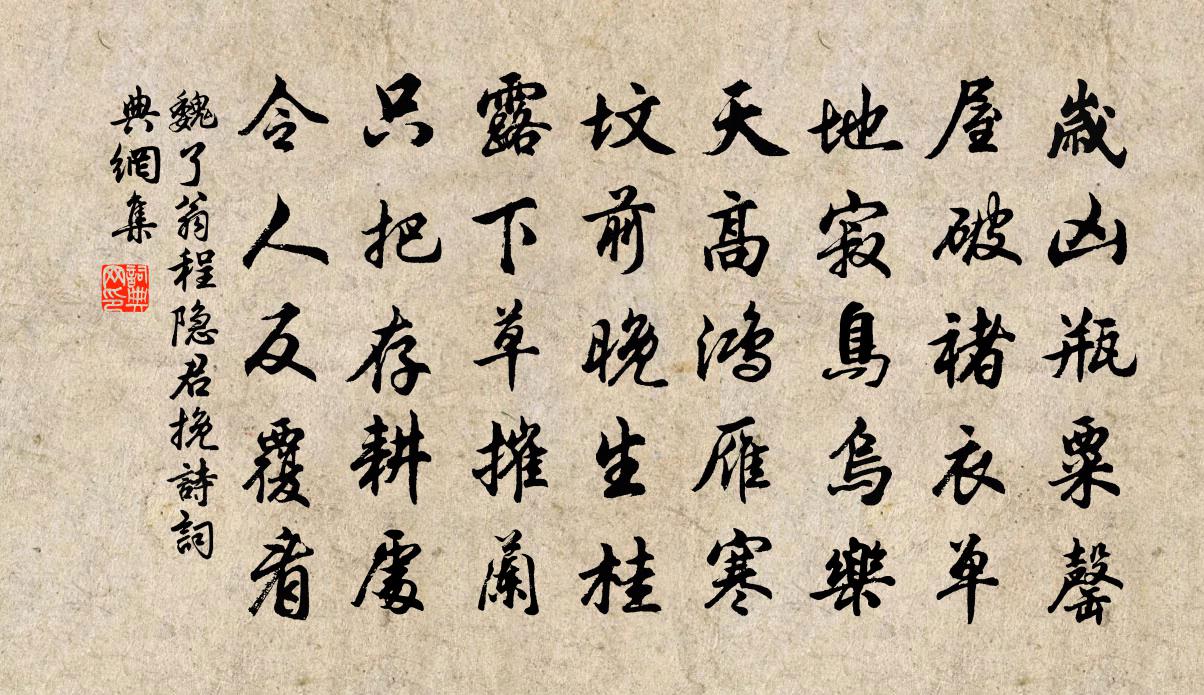 歲凶瓶粟罄
屋破褚衣单
地寂鳥烏樂
天高鴻雁寒
坟前晚生桂
露下草摧蘭
只把存耕處
令人反覆看
魏了翁程隐君挽詩詞
典網集
詞典网印